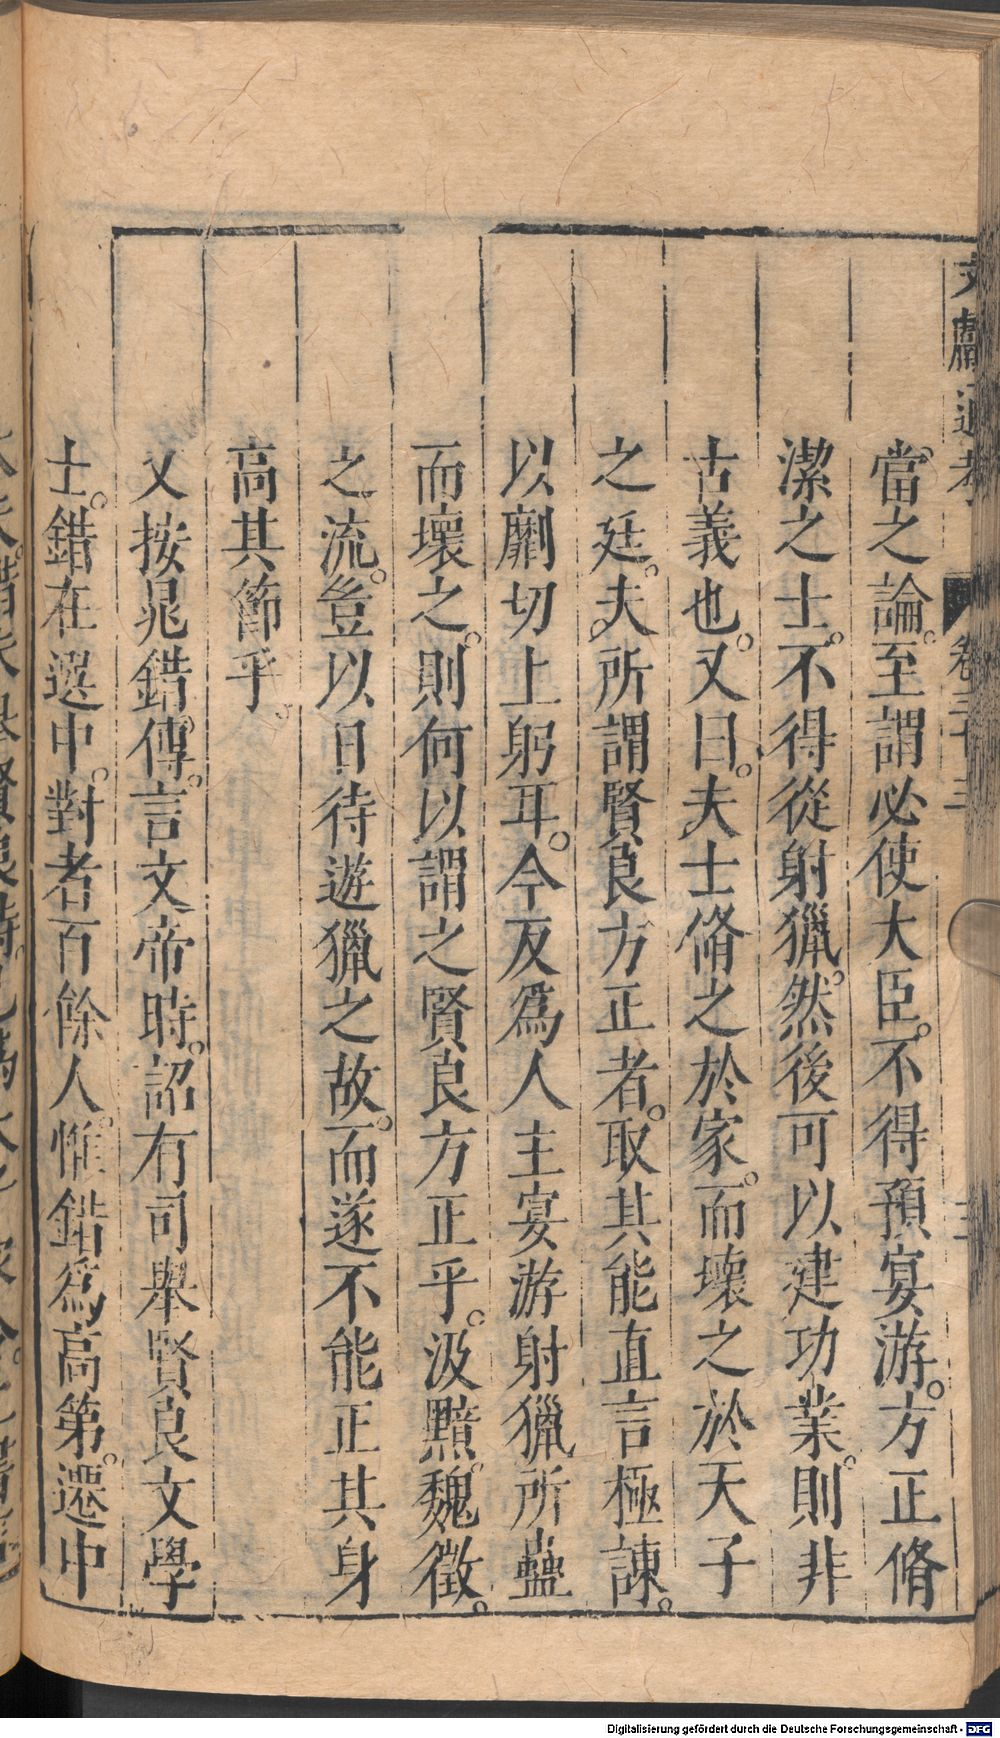 文獻通考 卷三十三
當之論。至謂必使大臣。不得預宴游。方正脩
潔之士。不得從射獵。然後可以建功業。則非
古義也。又曰。夫士脩之於家。而壞之於天子
之廷。夫所謂賢良方正者。取其能直言極諫。
以劘切上躬耳。今反爲人主宴游射獵所蠱
而壞之。則何以謂之賢良方正乎。汲黯。魏徵。
之流。豈以日待遊獵之故。而遂不能正其身
高其節乎。
又按晁錯傳。言文帝時。詔有司舉賢良文學
士。錯在選中。對者百餘人。惟錯爲高第。遷中
Digitalisierung gefördert durch die Deutsche Forschungsgemeinschaft - DFG